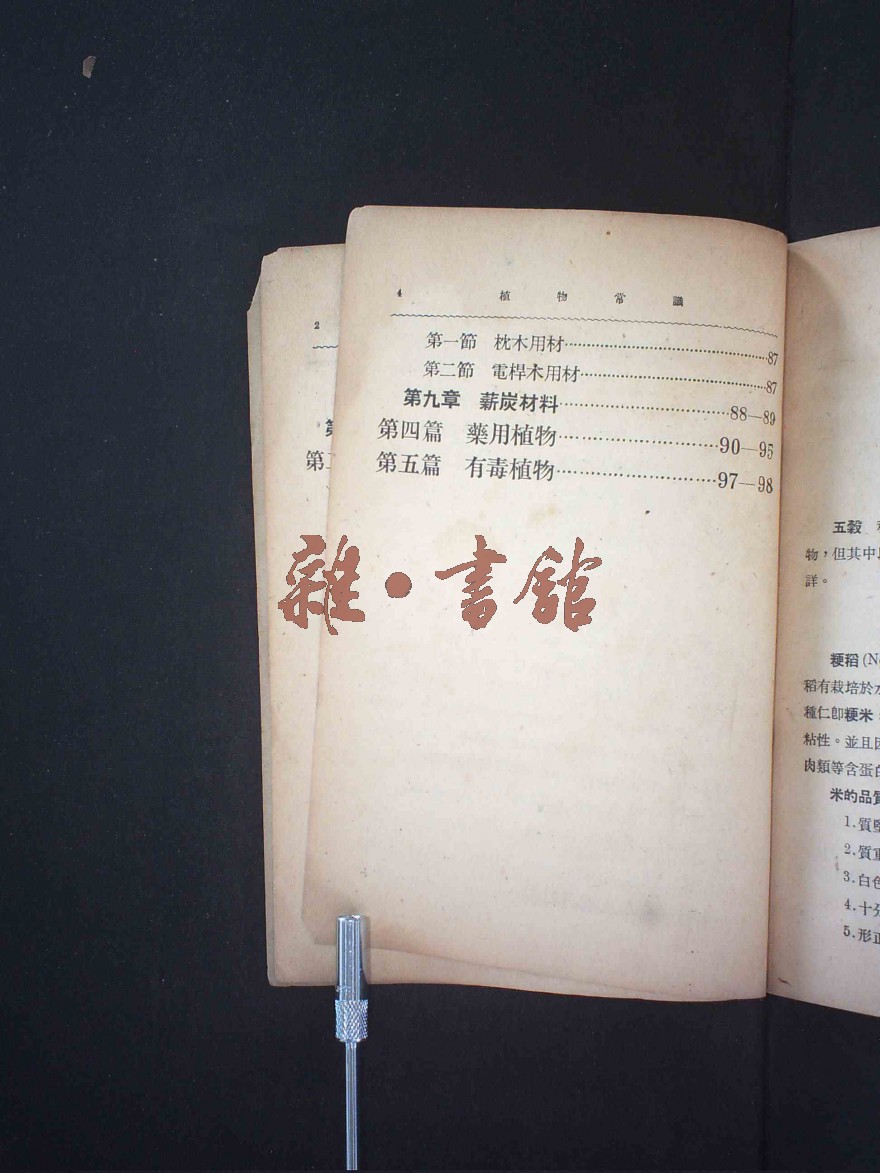 4 植物常識
第一節 枕木用材……87
第二節 電桿木用材……87
第九章 薪炭材料……88—89
第四篇 藥用植物……90—95
第五篇 有毒植物……97—98
2
第
第
雜·書館
五穀
物，但其中
詳。
粳稻(N
稻有栽培於
種仁卽粳米
粘性。並且因
肉類等含蛋白
米的品質
1.質堅
2.質重
3.白色
4.十分
5.形正